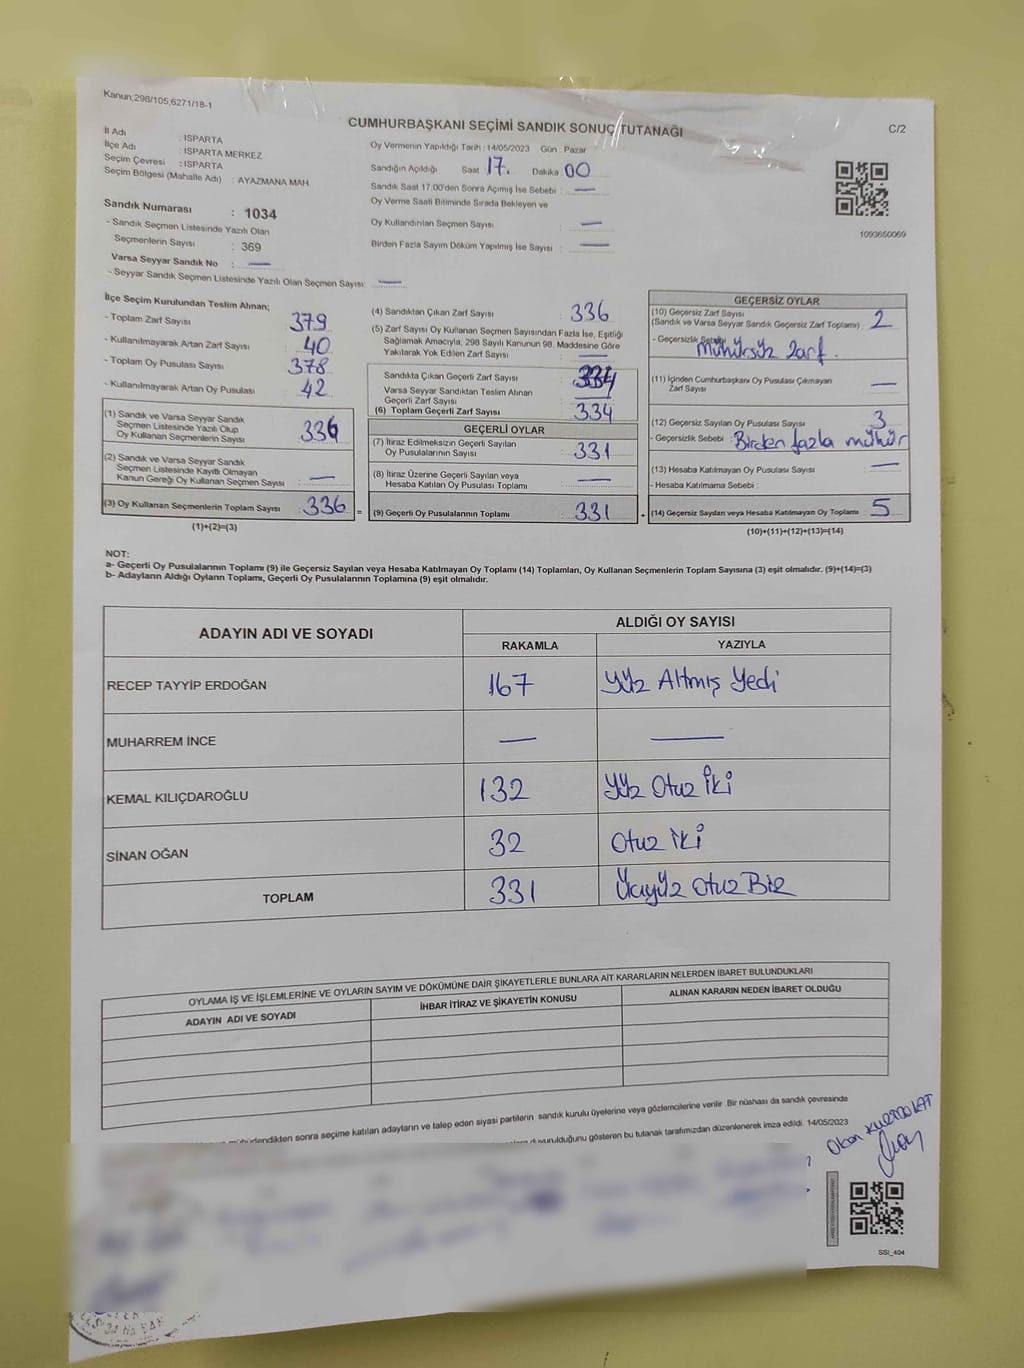 Kanun,298/105,6271/18-1
CUMHURBAŞKANI SEÇİMİ SANDIK SONUÇ TUTANAĞI
C/2
İl Adı : ISPARTA
İlçe Adı : ISPARTA MERKEZ
Seçim Çevresi : ISPARTA
Seçim Bölgesi (Mahalle Adı) : AYAZMANA MAH
Sandık Numarası : 1034
- Sandık Seçmen Listesinde Yazılı Olan
Seçmenlerin Sayısı : 369
Varsa Seyyar Sandık No : —
- Seyyar Sandık Seçmen Listesinde Yazılı Olan Seçmen Sayısı: —
Oy Vermenin Yapıldığı Tarih : 14/05/2023 Gün : Pazar
Sandığın Açıldığı Saat 17. Dakika 00
Sandık Saat 17:00'den Sonra Açımış İse Sebebi : —
Oy Verme Saati Bitiminde Sırada Bekleyen ve
Oy Kullandırılan Seçmen Sayısı : —
Birden Fazla Sayım Döküm Yapılmış İse Sayısı : —
1093650069
İlçe Seçim Kurulundan Teslim Alınan;
- Toplam Zarf Sayısı : 379
- Kullanılmayarak Artan Zarf Sayısı : 40
- Toplam Oy Pusulası Sayısı : 378
- Kullanılmayarak Artan Oy Pusulası : 42
(1) Sandık ve Varsa Seyyar Sandık
Seçmen Listesinde Yazılı Olup
Oy Kullanan Seçmenlerin Sayısı : 336
(2) Sandık ve Varsa Seyyar Sandık
Seçmen Listesinde Kayıtlı Olmayan
Kanun Gereği Oy Kullanan Seçmen Sayısı : —
(3) Oy Kullanan Seçmenlerin Toplam Sayısı : 336
(1)+(2)=(3)
(4) Sandıktan Çıkan Zarf Sayısı : 336
(5) Zarf Sayısı Oy Kullanan Seçmen Sayısından Fazla İse, Eşitliği
Sağlamak Amacıyla, 298 Sayılı Kanunun 98. Maddesine Göre
Yakılarak Yok Edilen Zarf Sayısı : —
Sandıkta Çıkan Geçerli Zarf Sayısı : 334
Varsa Seyyar Sandıktan Teslim Alınan
Geçerli Zarf Sayısı : —
(6) Toplam Geçerli Zarf Sayısı : 334
GEÇERLİ OYLAR
(7) İtiraz Edilmeksizin Geçerli Sayılan
Oy Pusulalarının Sayısı : 331
(8) İtiraz Üzerine Geçerli Sayılan veya
Hesaba Katılan Oy Pusulası Toplamı : —
(9) Geçerli Oy Pusulalarının Toplamı : 331
GEÇERSİZ OYLAR
(10) Geçersiz Zarf Sayısı
(Sandık ve Varsa Seyyar Sandık Geçersiz Zarf Toplamı) : 2
- Geçersizlik Sebebi : Mühürsüz Zarf.
(11) İçinden Cumhurbaşkanı Oy Pusulası Çıkmayan
Zarf Sayısı : —
(12) Geçersiz Sayılan Oy Pusulası Sayısı : 3
- Geçersizlik Sebebi : Birden fazla mühür
(13) Hesaba Katılmayan Oy Pusulası Sayısı : —
- Hesaba Katılmama Sebebi :
(14) Geçersiz Sayılan veya Hesaba Katılmayan Oy Toplamı : 5
(10)+(11)+(12)+(13)=(14)
NOT:
a- Geçerli Oy Pusulalarının Toplamı (9) ile Geçersiz Sayılan veya Hesaba Katılmayan Oy Toplamı (14) Toplamları, Oy Kullanan Seçmenlerin Toplam Sayısına (3) eşit olmalıdır. (9)+(14)=(3)
b- Adayların Aldığı Oyların Toplamı, Geçerli Oy Pusulalarının Toplamına (9) eşit olmalıdır.
ADAYIN ADI VE SOYADI
ALDIĞI OY SAYISI
RAKAMLA YAZIYLA
RECEP TAYYİP ERDOĞAN 167 Yüz Altmış Yedi
MUHARREM İNCE — —
KEMAL KILIÇDAROĞLU 132 Yüz Otuz İki
SİNAN OĞAN 32 Otuz İki
TOPLAM 331 Üçyüz Otuz Bir
OYLAMA İŞ VE İŞLEMLERİNE VE OYLARIN SAYIM VE DÖKÜMÜNE DAİR ŞİKAYETLERLE BUNLARA AİT KARARLARIN NELERDEN İBARET BULUNDUKLARI
ADAYIN ADI VE SOYADI
İHBAR İTİRAZ VE ŞİKAYETİN KONUSU
ALINAN KARARIN NEDEN İBARET OLDUĞU
mühürlendikten sonra seçime katılan adayların ve talep eden siyasi partilerin sandık kurulu üyelerine veya gözlemcilerine verilir. Bir nüshası da sandık çevresinde
duyurulduğunu gösteren bu tutanak tarafımızdan düzenlenerek imza edildi. 14/05/2023
SSI_404